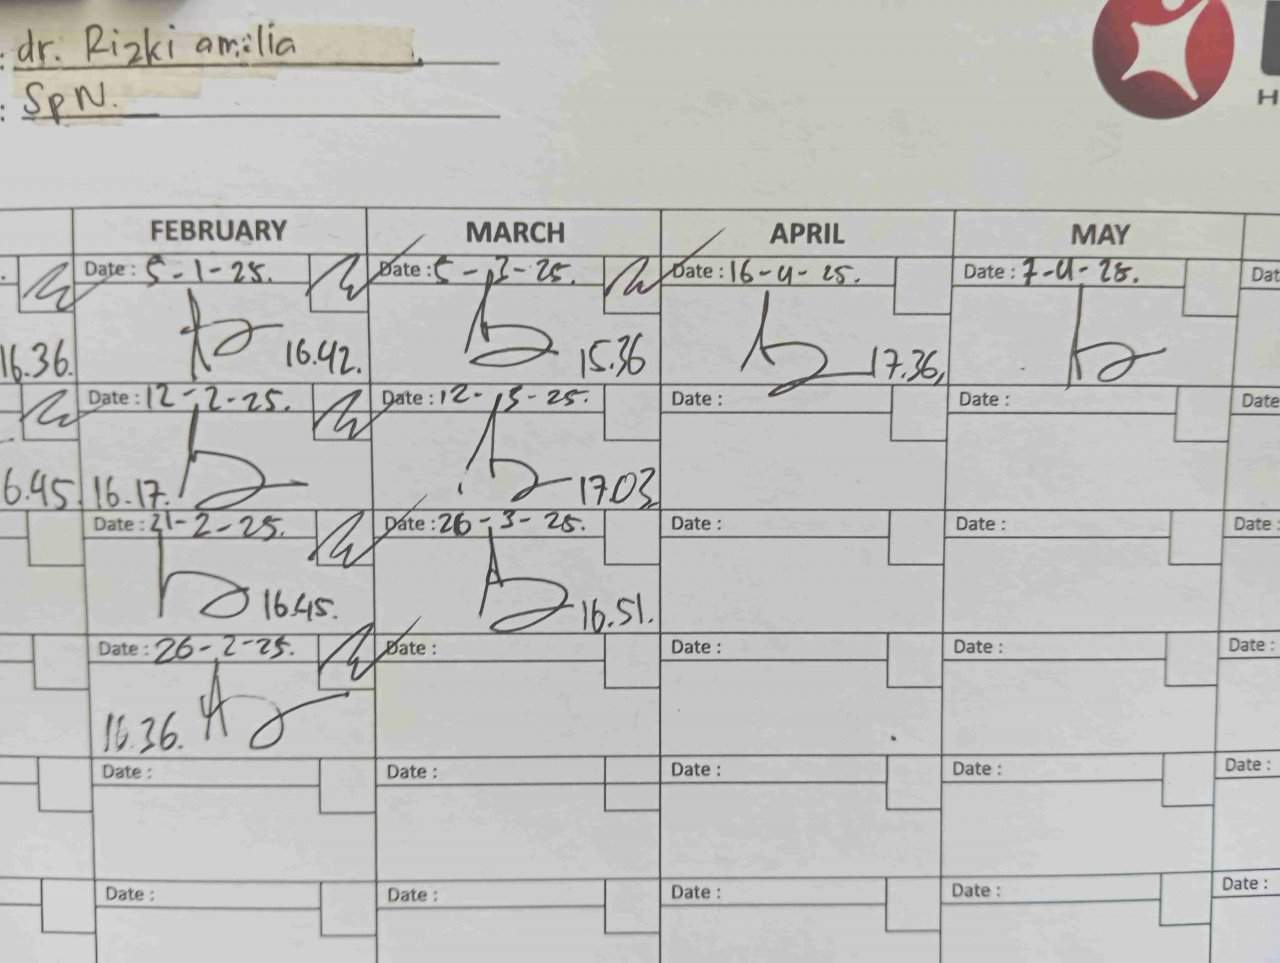 : dr. Rizki amilia
: SpN.
H
FEBRUARY MARCH APRIL MAY
Date : 5-1-25. Date : 5-3-25. Date : 16-4-25. Date : 7-4-25. Dat
16.36. 16.42. 15.36 17.36,
Date : 12-2-25. Date : 12-3-25. Date : Date : Date
6.45 16.17. 17.03
Date : 21-2-25. Date : 26-3-25. Date : Date : Date :
16.45. 16.51.
Date : 26-2-25. Date : Date : Date : Date :
16.36.
Date : Date : Date : Date : Date :
Date : Date : Date : Date : Date :